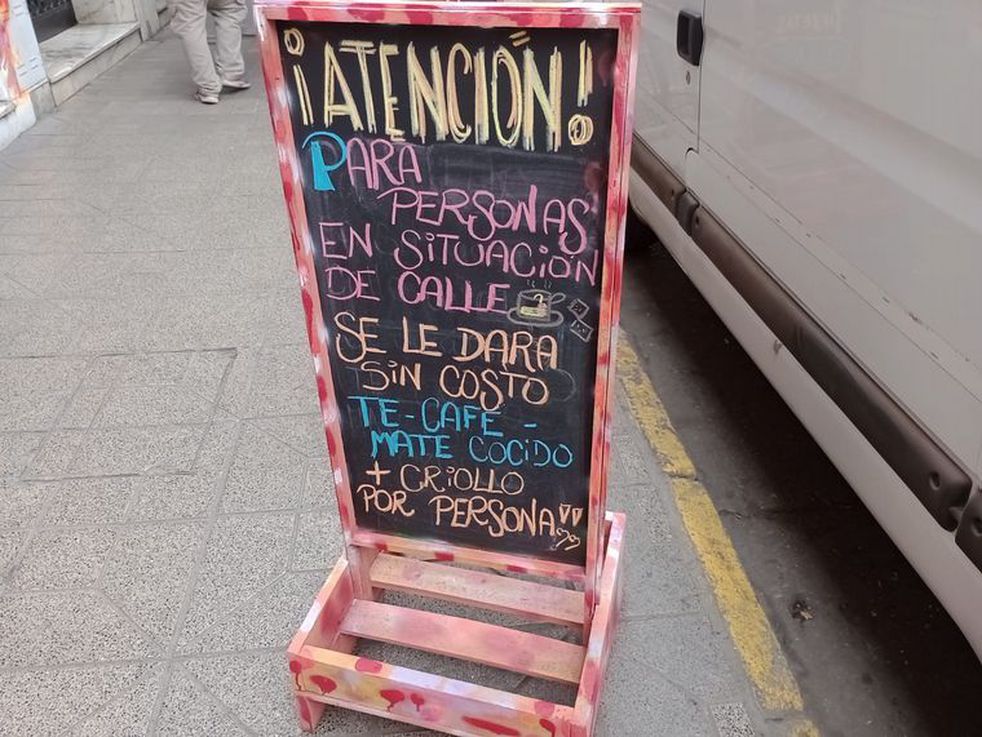 ¡ATENCIÓN!
PARA
PERSONAS
EN SITUACIÓN
DE CALLE
SE LE DARA
SIN COSTO
TE-CAFE-
MATE COCIDO
+ CRIOLLO
POR PERSONA!!